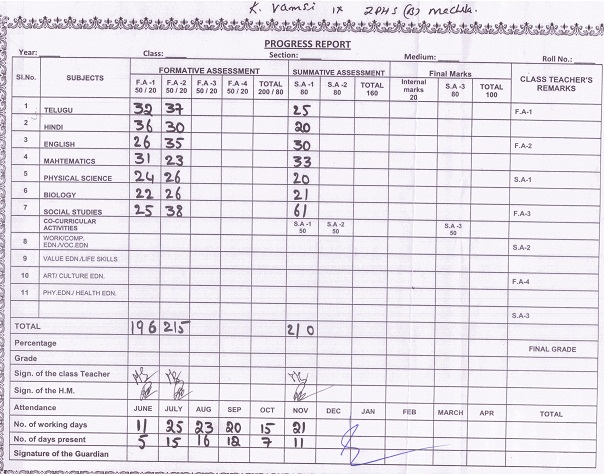 K. Vamsi IX ZPHS (B) Medchla.
PROGRESS REPORT
Year: Class: Section: Medium: Roll No.:
Sl.No. SUBJECTS FORMATIVE ASSESSMENT SUMMATIVE ASSESSMENT Final Marks CLASS TEACHER'S REMARKS
F.A -1 50 / 20 F.A -2 50 / 20 F.A -3 50 / 20 F.A -4 50 / 20 TOTAL 200 / 80 S.A -1 80 S.A -2 80 TOTAL 160 Internal marks 20 S.A -3 80 TOTAL 100
1 TELUGU 32 37 25 F.A-1
2 HINDI 36 30 20
3 ENGLISH 26 35 30 F.A-2
4 MAHTEMATICS 31 23 33
5 PHYSICAL SCIENCE 24 26 20 S.A-1
6 BIOLOGY 22 26 21
7 SOCIAL STUDIES 25 38 61 F.A-3
CO-CURRICULAR ACTIVITIES S.A -1 50 S.A -2 50 S.A -3 50
8 WORK/COMP. EDN./VOC.EDN S.A-2
9 VALUE EDN./LIFE SKILLS
10 ART/ CULTURE EDN. F.A-4
11 PHY.EDN./ HEALTH EDN.
S.A-3
TOTAL 196 215 210
Percentage FINAL GRADE
Grade
Sign. of the class Teacher
Sign. of the H.M.
Attendance JUNE JULY AUG SEP OCT NOV DEC JAN FEB MARCH APR TOTAL
No. of working days 11 25 23 20 15 21
No. of days present 5 15 16 12 7 11
Signature of the Guardian